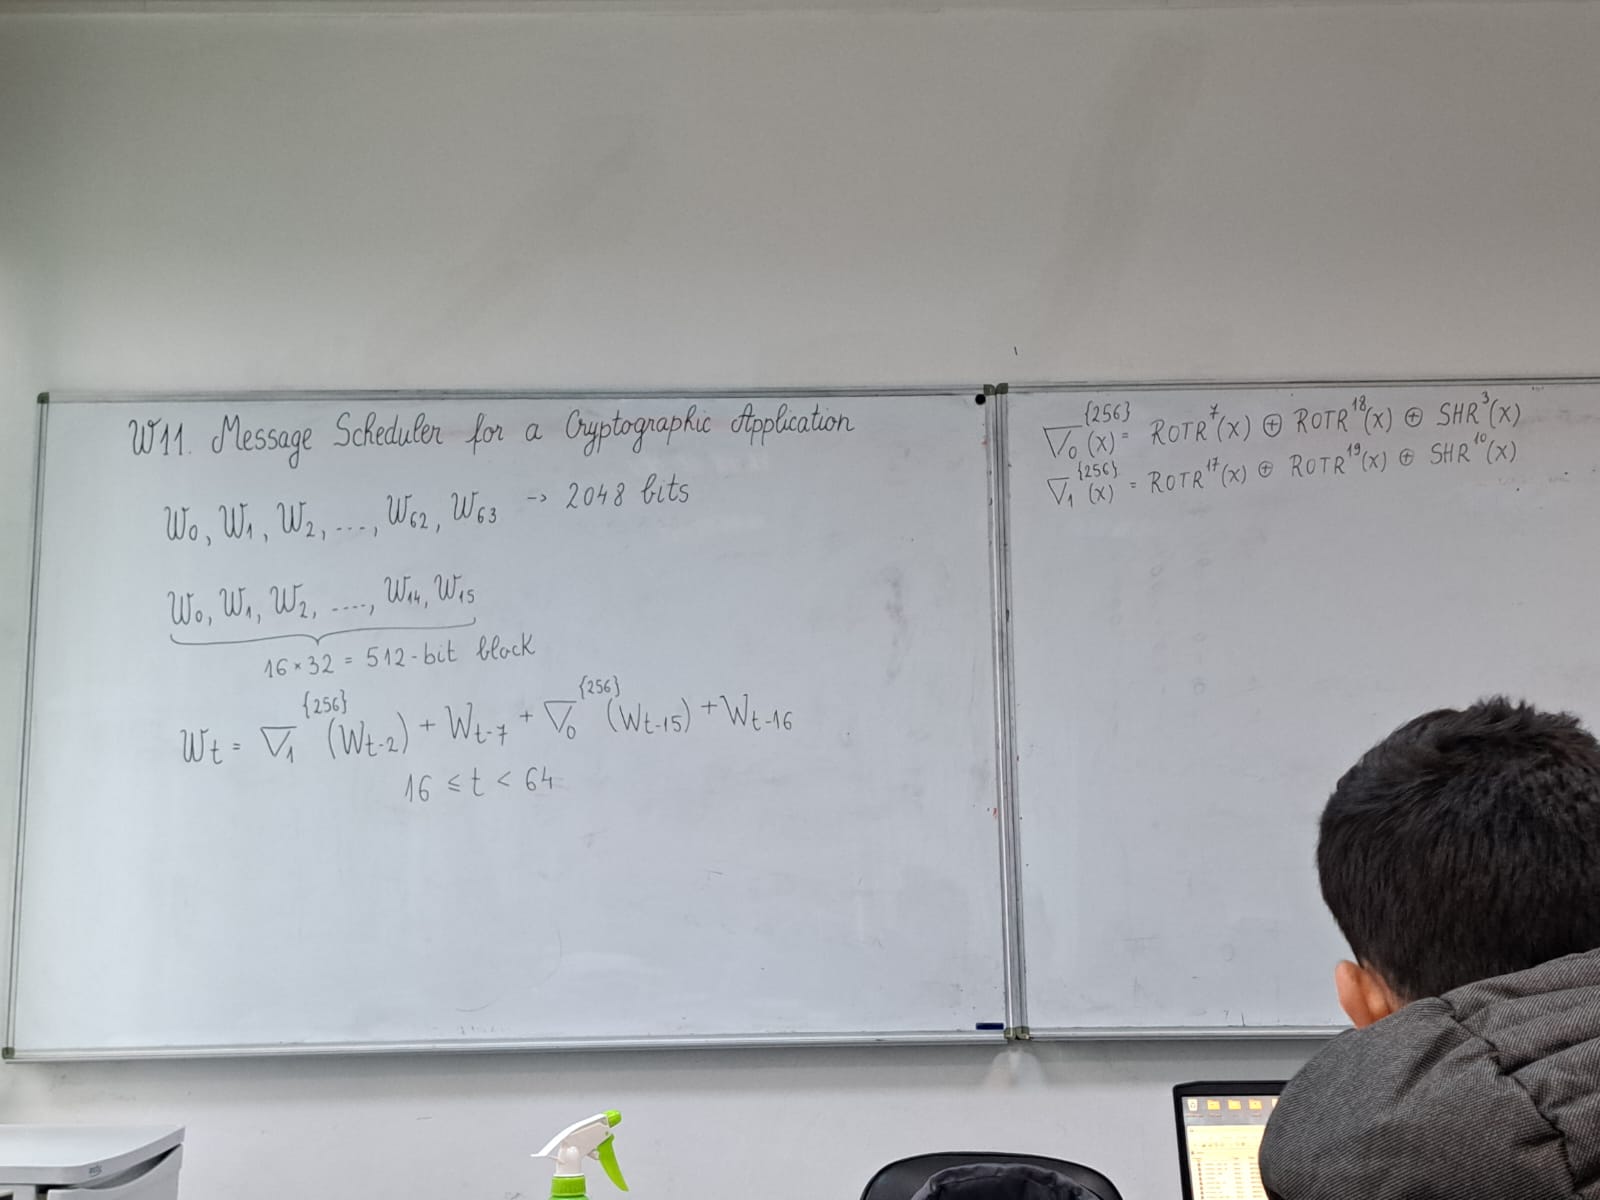 W11. Message Scheduler for a Cryptographic Application
W₀, W₁, W₂, ...., W₆₂, W₆₃ -> 2048 bits
W₀, W₁, W₂, ....., W₁₄, W₁₅
16 × 32 = 512-bit block
Wt = ∇₁^{256} (Wt-2) + Wt-7 + ∇₀^{256} (Wt-15) + Wt-16
16 ≤ t < 64
∇₀^{256} (x) = ROTR⁷(x) ⊕ ROTR¹⁸(x) ⊕ SHR³(x)
∇₁^{256} (x) = ROTR¹⁷(x) ⊕ ROTR¹⁹(x) ⊕ SHR¹⁰(x)